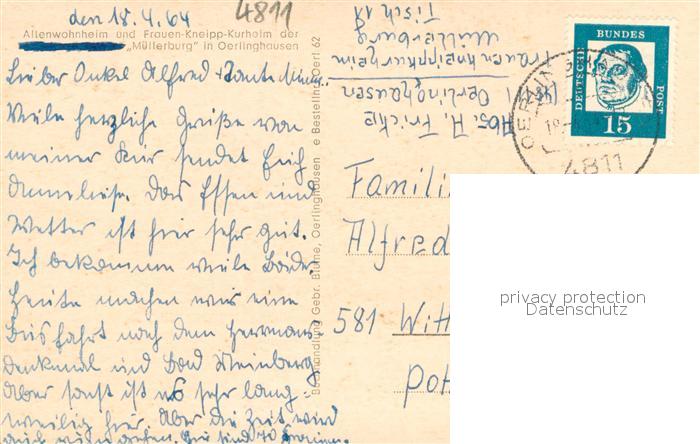 den 18.4.64
4811
Altenwohnheim und Frauen-Kneipp-Kurheim der
„Müllerburg" in Oerlinghausen
Lieber Onkel Alfred + Tante
Viele herzliche Grüße von
meiner Kur sendet Euch
Anneliese. Das Essen und
Wetter ist hier sehr gut.
Ich bekomme viele Bäder.
Heute machen wir eine
Busfahrt nach dem Hermanns
denkmal und Bad Meinberg
Aber sonst ist es sehr lang-
weilig hier. Aber die Zeit wird
auch vergehen. Wir sind 70 Frauen.
Buchhandlung Gebr. Blume, Oerlinghausen e Bestellnr. Oerl 62
Abs. A. Fricke
Oerlinghausen
Frauen Kneippkurheim
Müllerburg
Tisch 11
DEUTSCHE
BUNDES
POST
15
4811
Famili
Alfred
581 Witt
privacy protection
Datenschutz